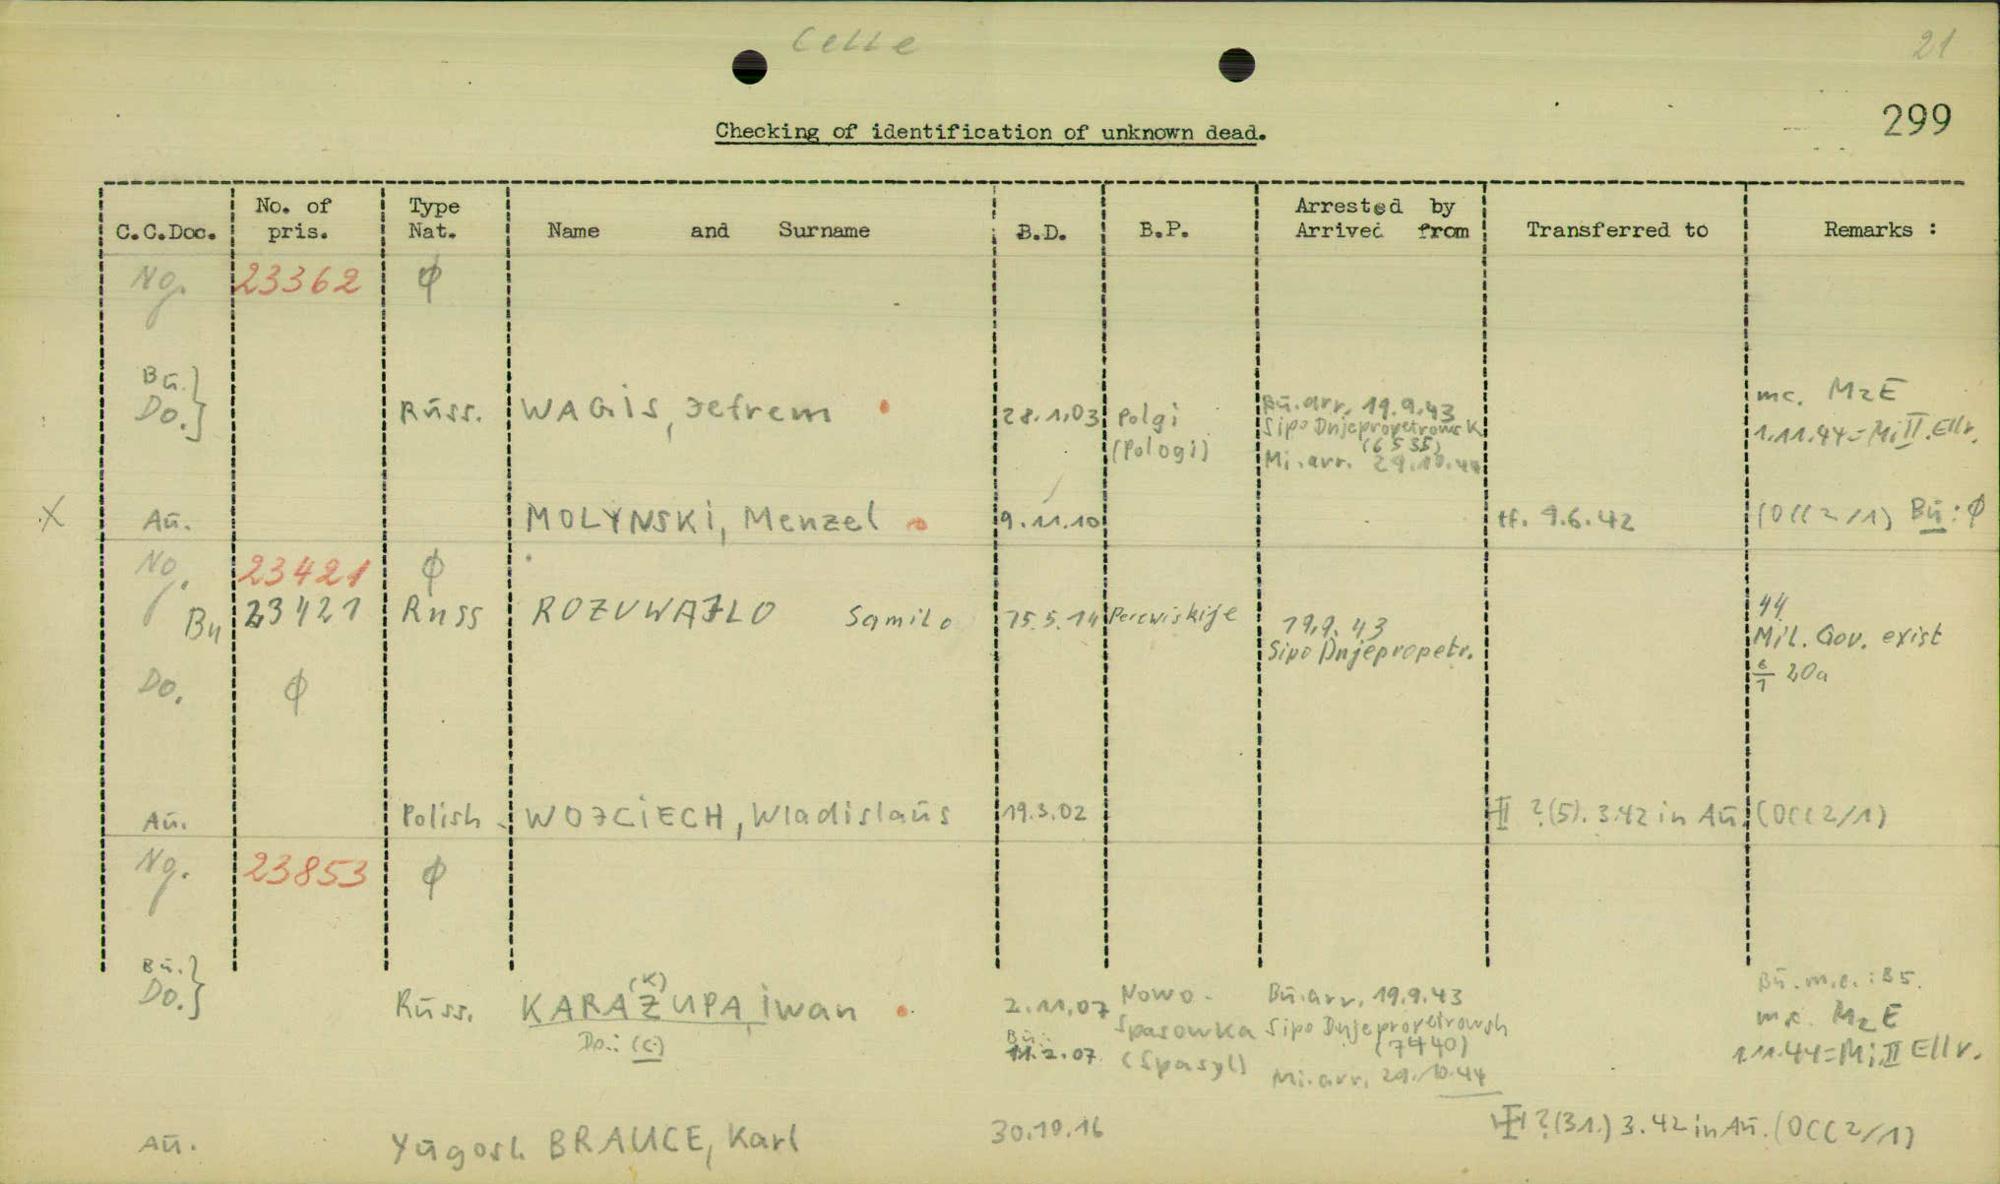 Celle
21
299
Checking of identification of unknown dead.
C.C.Doc. No. of pris. Type Nat. Name and Surname B.D. B.P. Arrested by Arrived from Transferred to Remarks :
Ng. 23362 φ
Bū. } Do. } Rūss. WAGiS, Jefrem 28.1.03 Polgi (Pologi) Bū.arr. 19.9.43
Sipo Dnjepropetrowsk
(6535)
Mi.arr. 29.10.44
mc. MzE
1.11.44=Mi II. Ellr.
X Aū. MOLYNSKi, Menzel 9.11.10 tf. 9.6.42 (OCC2/1) Bū: φ
Ng. 23421 φ
Bu 23421 Russ ROZUWAJLO Samilo 15.5.14 Perewiskije 19.9.43
Sipo Dnjepropetr.
44
Mil. Gov. exist
6/7 20a
Do. φ
Aū. Polish WOJCiECH, Wladislaūs 19.3.02 ?(5). 3.42 in Aū. (OCC2/1)
Ng. 23853 φ
Bū. } Do. } Rūss. KARAZUPA, iwan (K)
Do.: (C)
2.11.07
Bū.:
11.2.07
Nowo-
Spasowka
(Spasyl)
Bū.arr. 19.9.43
Sipo Dnjepropetrowsk
(7440)
Mi.arr. 29.10.44
Bū. m.c.: B5.
mc. MzE
1.11.44=Mi.II Ellr.
Aū. Yūgosl. BRAUCE, Karl 30.10.16 ?(31.) 3.42 in Aū. (OCC2/1)